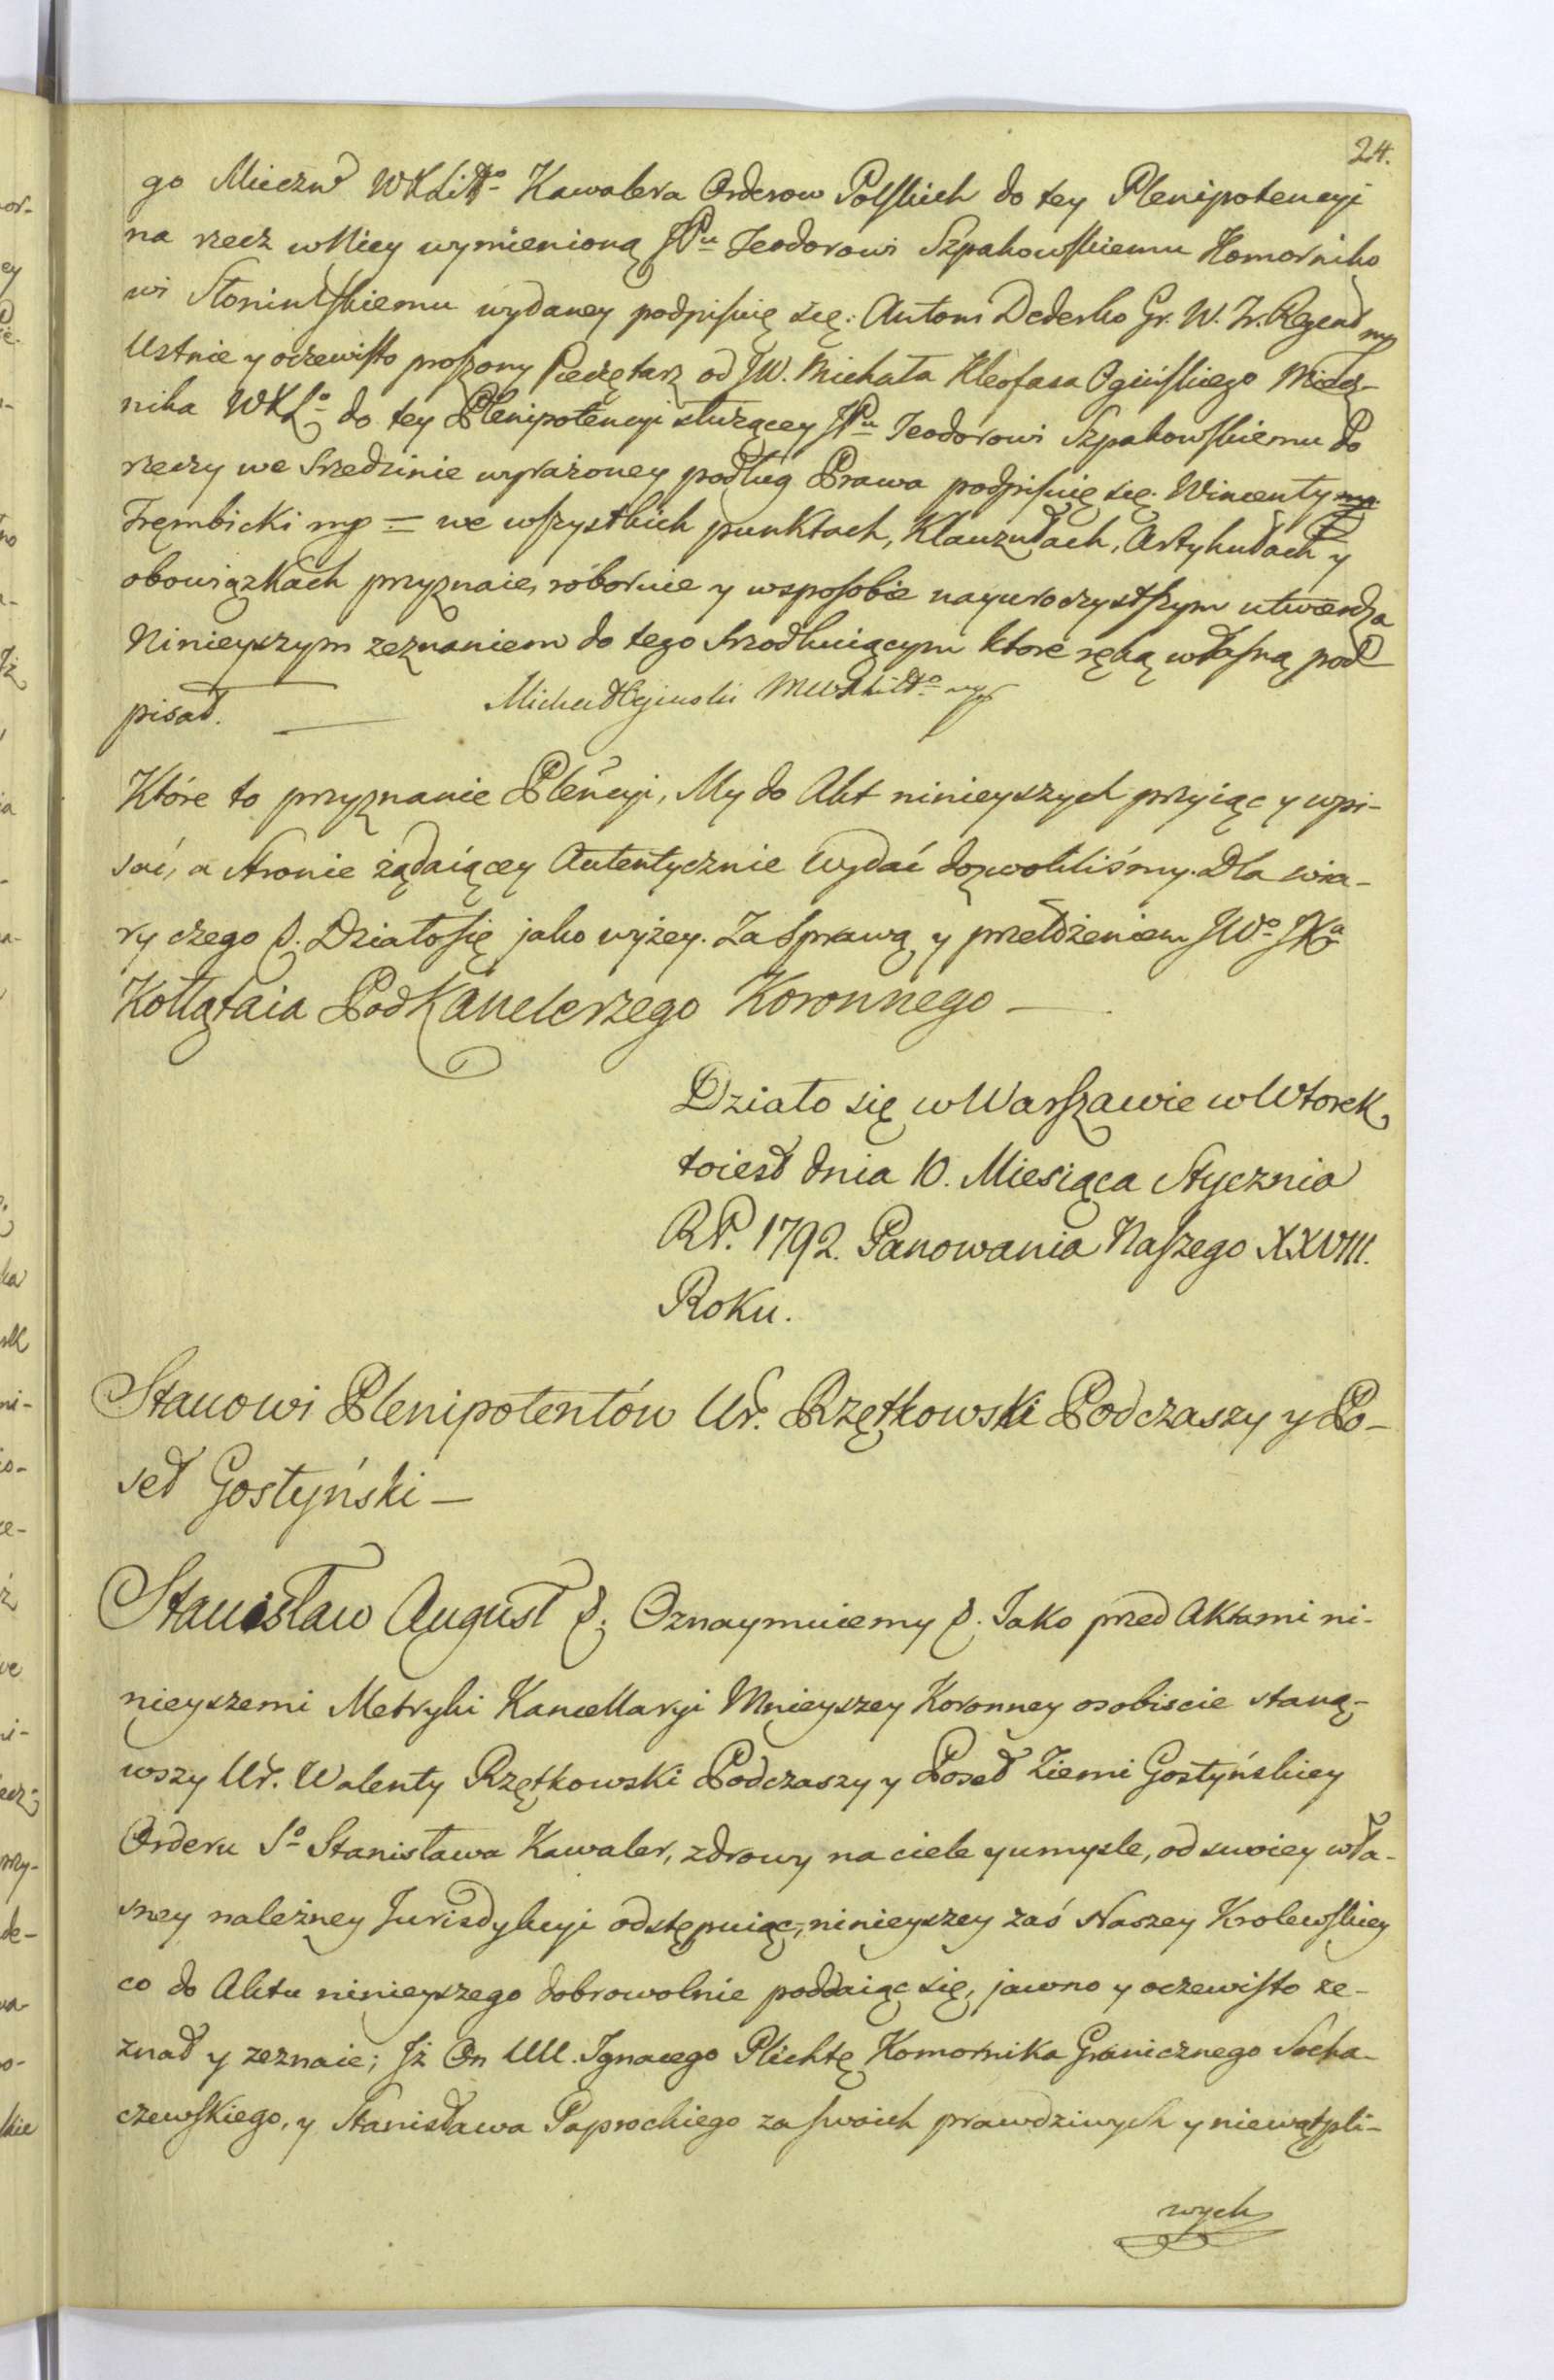 24.
go Mieczn WXLitt° Kawalera Orderow Polskich do tey Plenipotencyi
na rzecz w Niey wymienioną JPu Teodorowi Szpakowskiemu Komorniko
wi Słonimskiemu wydaney podpisuię się: Antoni Dederko Gr. W. Tr. Regent mp
Ustnie y oczewisto proszony Pieczętarz od JW. Michała Kleofasa Ogińskiego Miecz-
nika WXL° do tey Plenipotencyi służącey JPu Teodorowi Szpakowskiemu do
rzeczy we srzedzinie wyrażoney podług Prawa podpisuię się. Wincenty
Trębicki mp = we wszystkich punktach, Klauzułach, Artykułach y
obowiązkach przyznaie, roboruie y wsposobie nayuroczystszym utwierdza
Ninieyszym zeznaniem do tego srzodkuiącym ktore ręką własną pod
pisał. Michał Ogiński MWXLitt° mp
Które to przyznanie Plencyi, My do Akt ninieyszych przyiąc y wpi-
sać, a stronie żądaiącey Autentycznie wydać dozwoliliśmy. Dla wia-
ry czego &. Działo się jako wyżey. Za sprawą y przełożeniem JW° JXa
Kołłątaia PodKanclerzego Koronnego —
Działo się w Warszawie w Wtorek
toiest dnia 10. Miesiąca Stycznia
RP. 1792. Panowania Naszego XXVIII.
Roku.
Stanowi Plenipotentów Ur. Rzętkowski Podczaszy y Po-
seł Gostyński —
Stanisław August &. Oznaymuiemy &. Jako przed Aktami ni-
nieyszemi Metryki Kancellaryi Mnieyszey Koronney osobiscie staną-
wszy Ur. Walenty Rzętkowski Podczaszy y Poseł Ziemi Gostyńskiey
Orderu S° Stanisława Kawaler, zdrowy na ciele y umysle, od swoiey wła-
sney należney Jurisdykcyi odstępuiąc, ninieyszey zaś Naszey Krolewskiey
co do Aktu ninieyszego dobrowolnie poddaiąc się, jawno y oczewisto ze-
znał y zeznaie; Jż On UU. Ignacego Plichtę Komornika Granicznego Socha-
czewskiego, y Stanisława Paprockiego za swoich prawdziwych y niewątpli-
wych